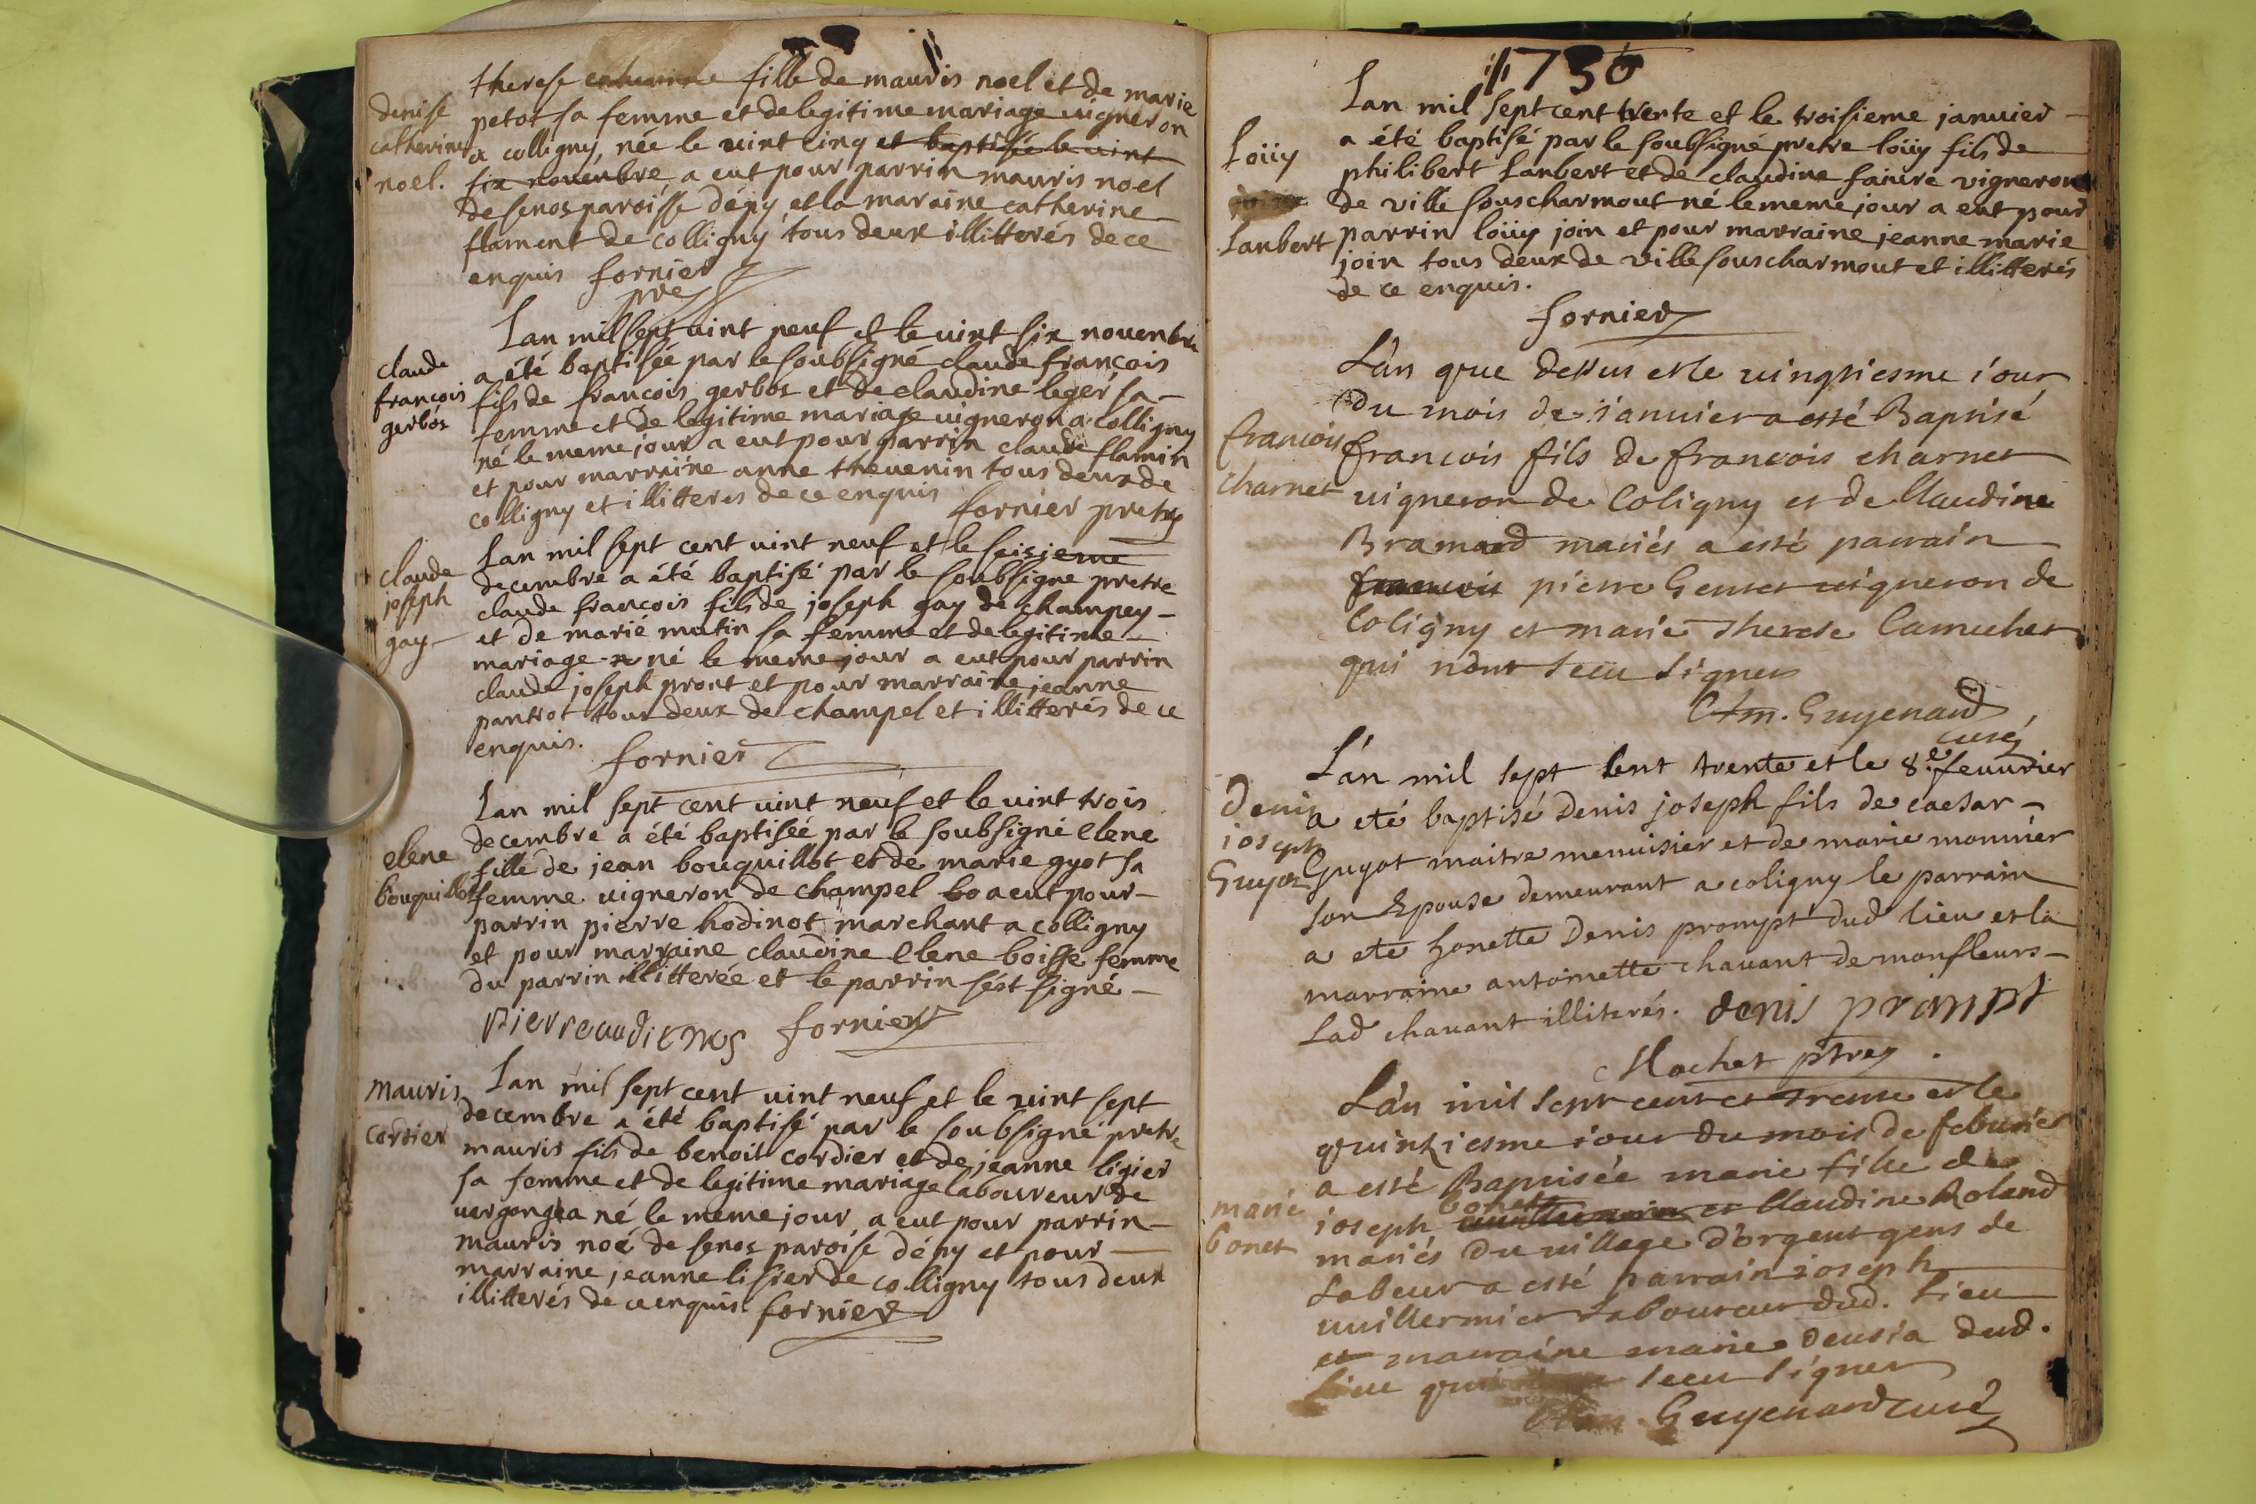 therese catherine fille de mauris noel et de marie
denise
petot sa femme et de legitime mariage vigneron
catherine
a colligny, née le vint cinq et baptisée le vint
noel.
six novenbre a eut pour parrin mauris noel
de senos paroisse dépy et la maraine catherine
flament de colligny tous deux illitterés de ce
enquis fornier
pre
Lan mil sept vint neuf et le vint six novenbre
claude
a été baptisée par le soubsigné claude françois
françois
fils de françois gerbos et de claudine leger sa
gerbos
femme et de legitime mariage vigneron a colligny
né le meme jour a eut pour parrin claude flamin
et pour marraine anne thevenin tous deux de
colligny et illitteres de ce enquis fornier pretre
Lan mil sept cent vint neuf et le seizieme
claude
decembre a été baptisé par le soubsigne pretre
joseph
claude françois fils de joseph gay de champey
gay
et de marie mutin sa femme et de legitime
mariage né le meme jour a eut pour parrin
claude joseph prost et pour marraine jeanne
pantrot tour deux de champel et illitterés de ce
enquis. fornier
Lan mil sept cent vint neuf et le vint trois
decembre a été baptisée par le soubsigné elene
elene
fille de jean bouquillot et de marie gyot sa
bouquillot
femme vigneron de champel bo a eut pour
parrin pierre hodinot marchant a colligny
et pour marraine claudine elene boisse femme
du parrin illitterée et le parrin sést signé
pierre fornier
mauris
Lan mil sept cent vint neuf et le vint sept
decembre a été baptisé par le soubsigné pretre
cordier
mauris fils de benoit cordier et de jeanne lisier
sa femme et de legitime mariage laboureur de
vergongea né le meme jour a eut pour parrin
mauris noé de senos paroise dépy et pour
marraine jeanne lisier de colligny tous deux
illitterés de ce enquis fornier
1730
Lan mil sept cent trente et le troisieme janvier
a été baptisé par le soubsigné pretre loüy fils de
Loüy
philibert Lanbert et de claudine faivre vigneron
de ville souscharmout né le meme jour a eut pour
Lanbert
parrin loüy join et pour marraine jeanne marie
join tous deux de ville souscharmout et illitterés
de ce enquis.
fornier
L'an que dessus et le vingtiesme iour
du mois de ianvier a esté Baptisé
francois
francois fils de francois charnet
charnet
vigneron de Coligny et de Claudine
Bramard mariés a esté parrain
francois pierre Genret vigneron de
Coligny et marie Therese Camuchet
qui n'ont sceu signer
Clm. Guyenard
curé
L'an mil sept cent trente et le 8.e feuvrier
Denis
a eté baptisé Denis joseph fils de caesar
ioseph
Guyot maitre menuisier et de marie monnier
Guyot
son Epouse demeurant a coligny le parrain
a ete honette Denis prompt dud lieu et la
marraine antoinette chavant de monfleurs
Lad chavant illiterés. denis prompt
Mochet ptre
L'an mil sept cent et trente et le
quinziesme iour du mois de febvrier
a esté Baptisée marie fille de
bonet
marie
ioseph vuillermin et Claudine Roland
bonet
mariés du village d'orgent gens de
Labeur a esté parrain ioseph
vuillermier Laboureur dud. Lieu
et marraine marie deusia dud.
Lieu qui sceu signer
Guyenard curé